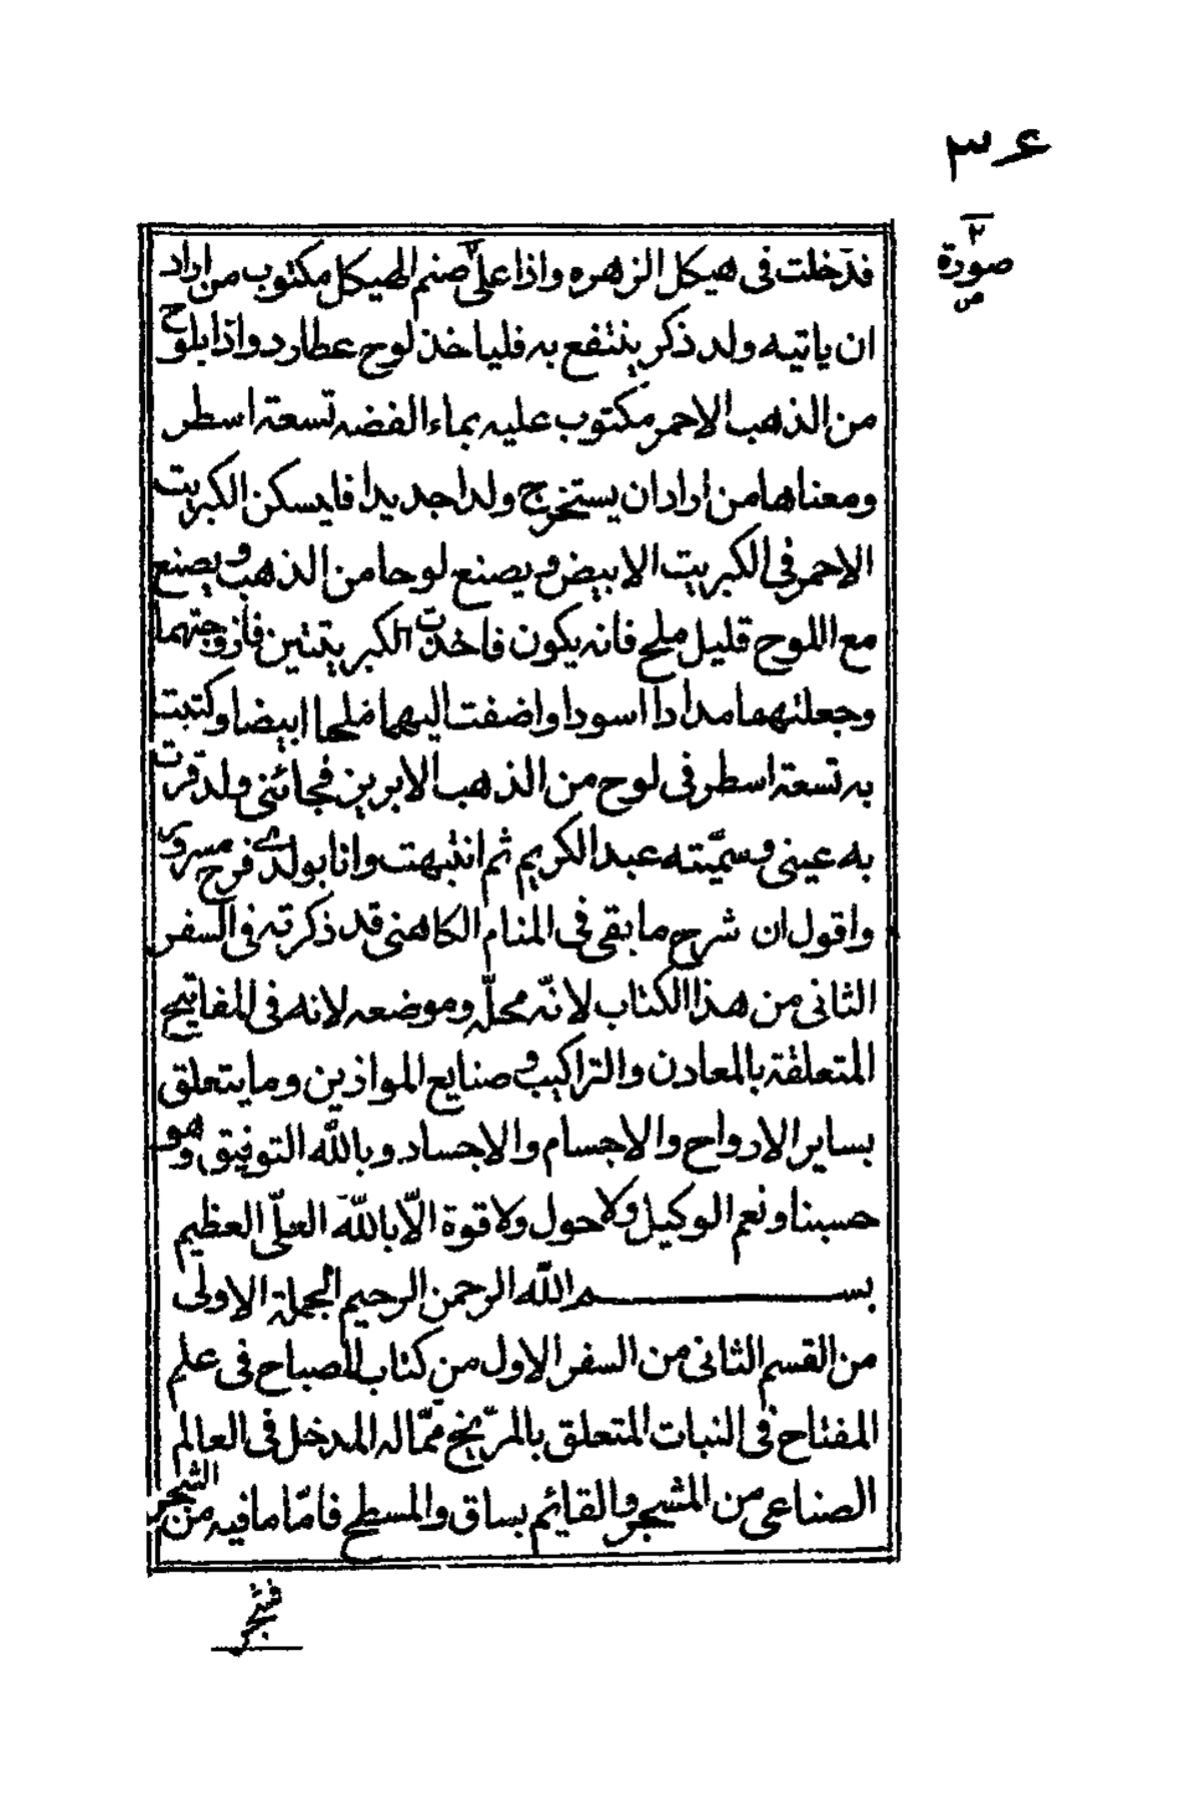 ٣٤
٢
صورة
ص
قد دخلت فى هيكل الزهره واذا على صنم الهيكل مكتوب من اراد
ان ياتيه ولد ذكر ينتفع به فلياخذ لوح عطارد واذا بلوح
من الذهب الاحمر مكتوب عليه بماء الفضه تسعة اسطر
ومعناها من اراد ان يستخرج ولدا جديدا فايسكن الكبريت
الاحمر فى الكبريت الابيض ويصنع لوحا من الذهب ويصنع
مع اللوح قليل ملح فانه يكون فاخذت الكبريتتين فازوجتهما
وجعلتهما مدادا اسودا واضفت اليهما ملحا ابيضا وكتبت
به تسعة اسطر فى لوح من الذهب الابريز فجائنى ولد قرت
به عينى وسمّيته عبد الكريم ثم انتبهت وانا بولدى فرح مسرور
واقول ان شرح ما بقى فى المنام الكاهنى قد ذكرته فى السفر
الثانى من هذا الكتاب لانّه محلّه وموضعه لانه فى المفاتيح
المتعلقة بالمعادن والتراكيب و صنايع الموازين وما يتعلق
بساير الارواح والاجسام والاجساد وبالله التوفيق وهو
حسبنا ونعم الوكيل ولا حول ولا قوة الّا بالله العلّى العظيم
بسم الله الرحمن الرحيم الجملة الاولى
من القسم الثانى من السفر الاول من كتاب المصباح فى علم
المفتاح فى النبات المتعلق بالمرّيخ ممّا له المدخل فى العالم
الصناعى من المشجر والقائم بساق والمسطح فامّا ما فيه من الشجر